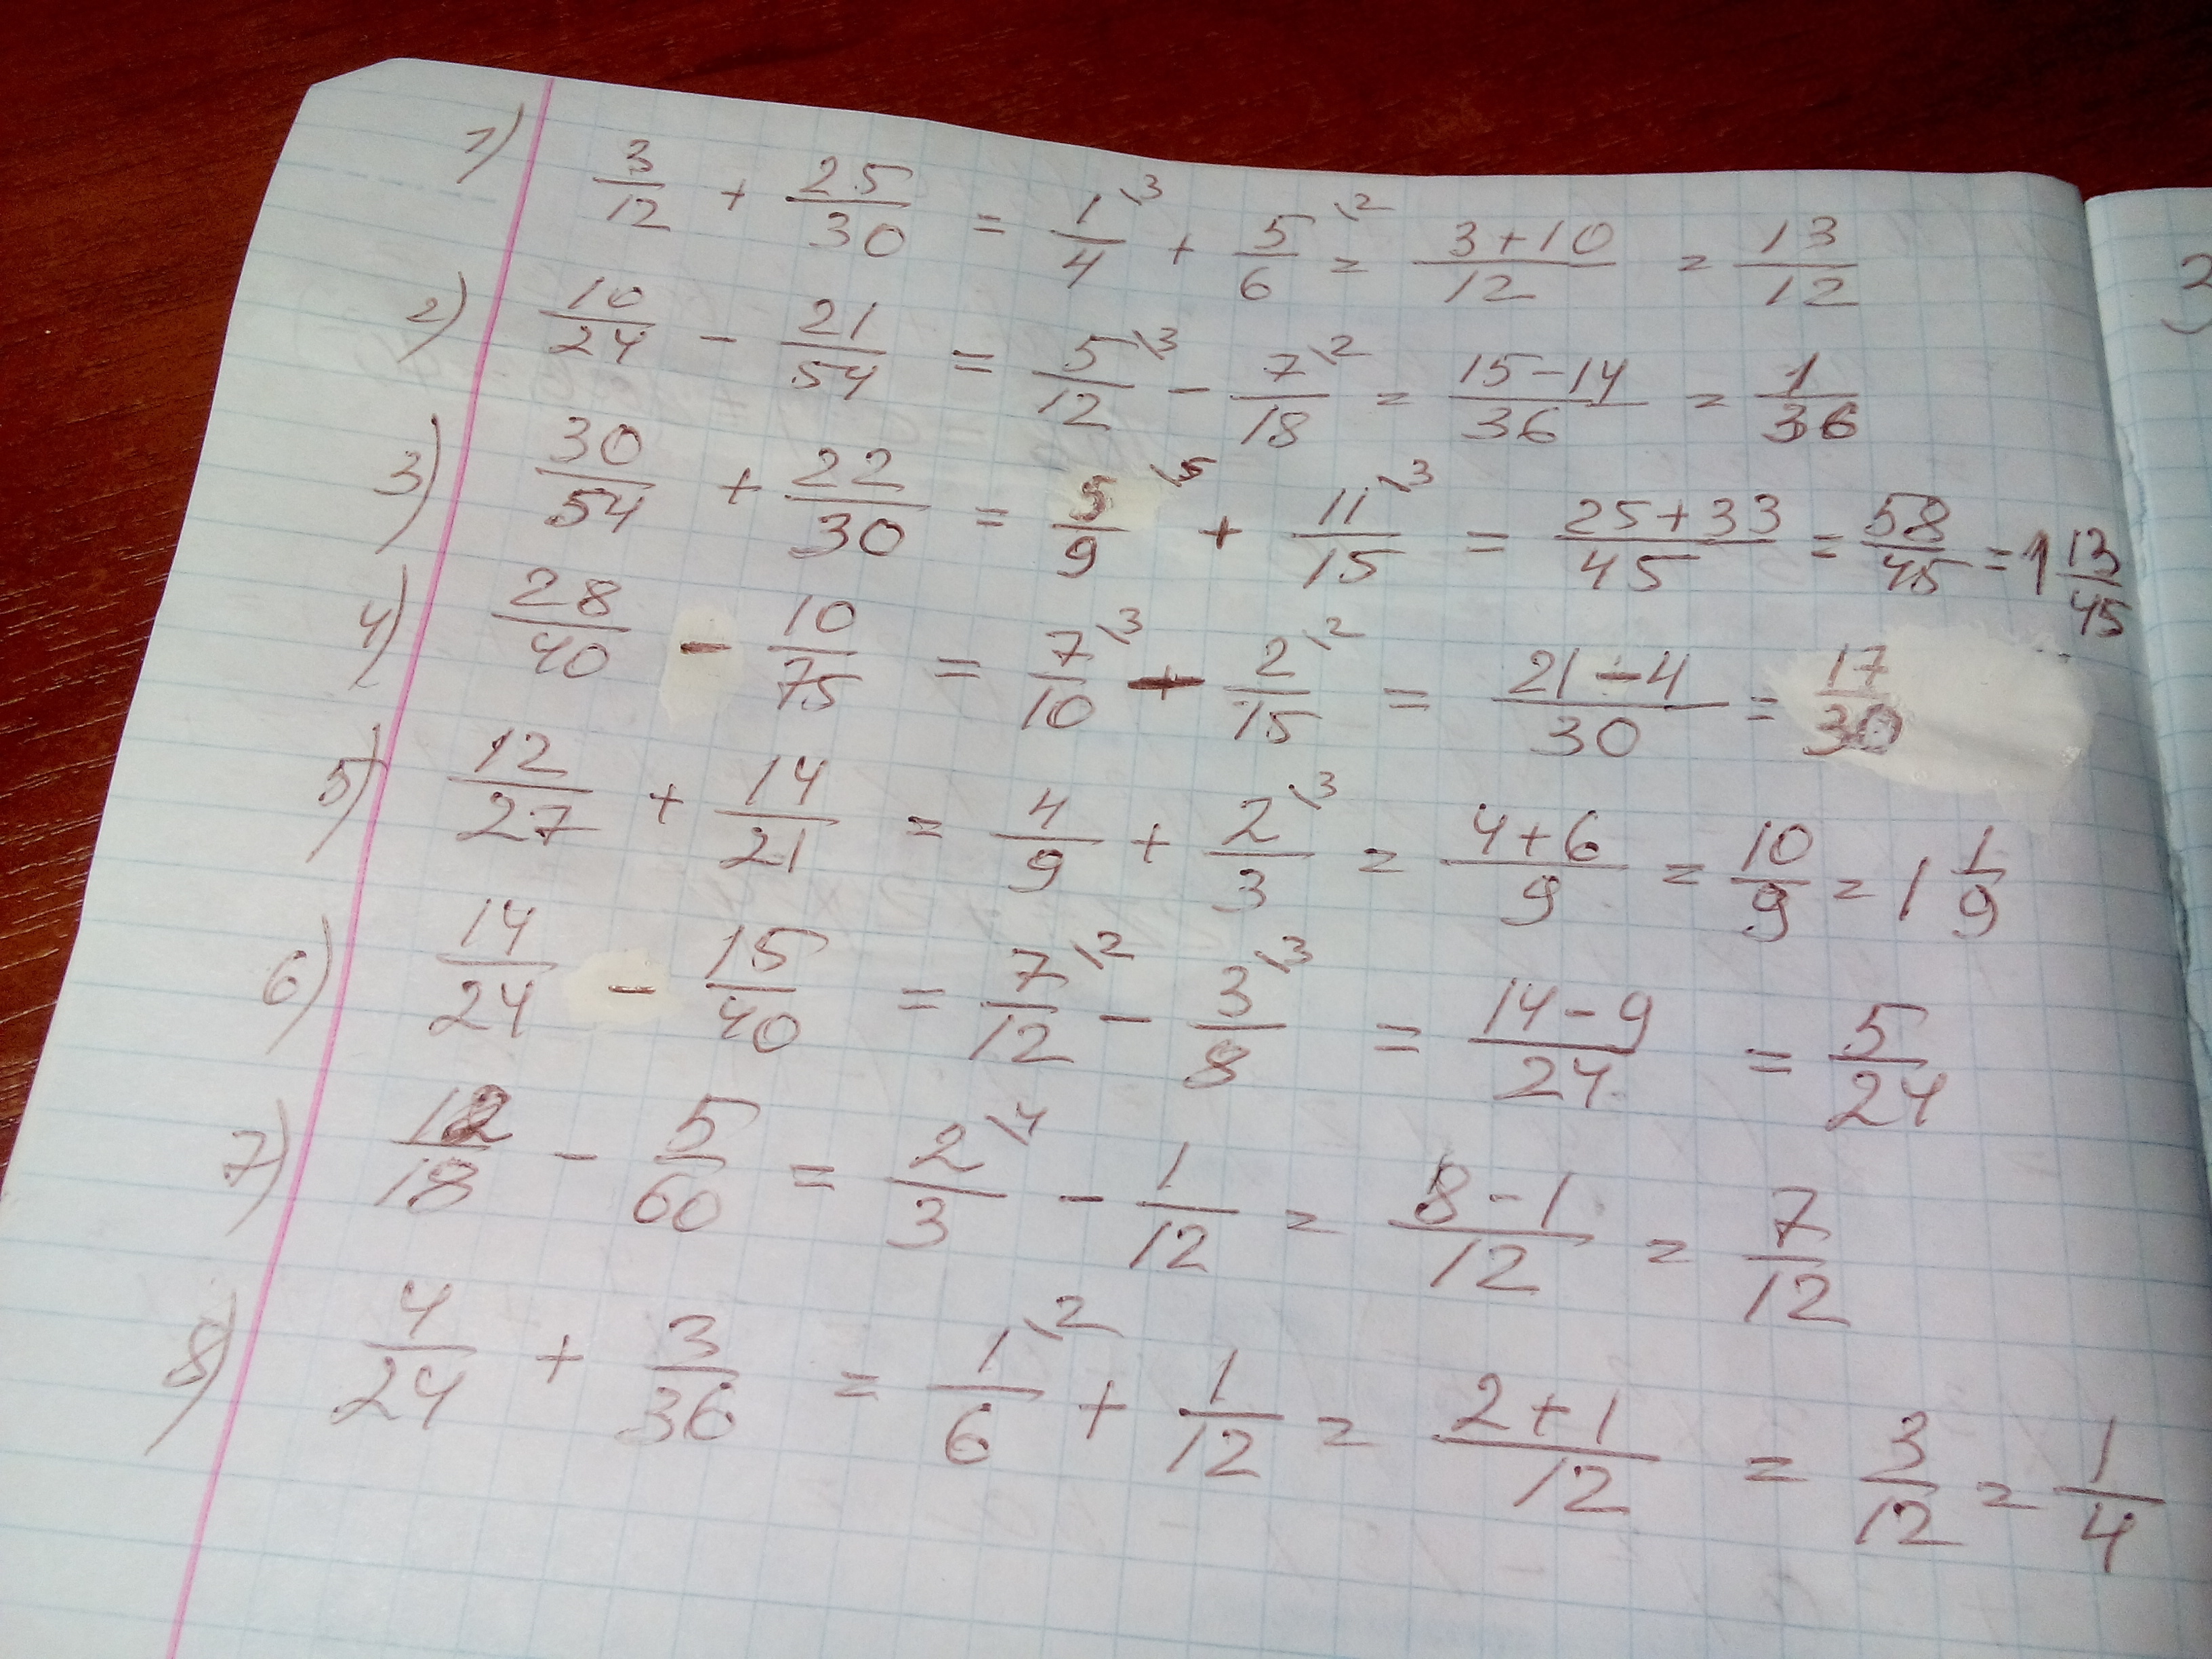 1) 3/12 + 25/30 = 1\3/4 + 5\2/6 = 3+10/12 = 13/12
2) 10/24 - 21/54 = 5\3/12 - 7\2/18 = 15-14/36 = 1/36
3) 30/54 + 22/30 = 5\5/9 + 11\3/15 = 25+33/45 = 58/45 = 1 13/45
4) 28/40 - 10/75 = 7\3/10 - 2\2/15 = 21-4/30 = 17/30
5) 12/27 + 14/21 = 4/9 + 2\3/3 = 4+6/9 = 10/9 = 1 1/9
6) 14/24 - 15/40 = 7\2/12 - 3\3/8 = 14-9/24 = 5/24
7) 12/18 - 5/60 = 2\4/3 - 1/12 = 8-1/12 = 7/12
8) 4/24 + 3/36 = 1\2/6 + 1/12 = 2+1/12 = 3/12 = 1/4